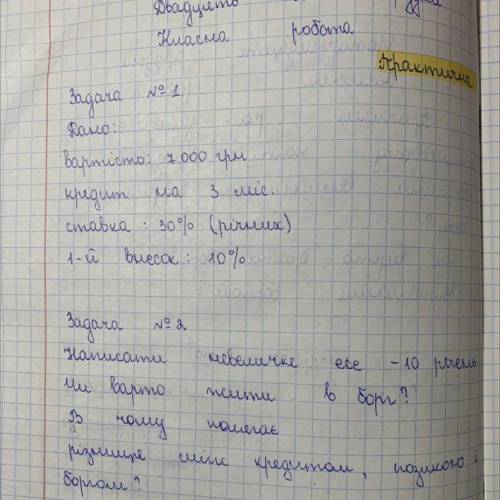 Двадцято
Класна робота
Практична
Задача №1.
Дано:
вартість: 7000 грн
кредит на 3 міс.
ставка: 30% (річних)
1-й внесок: 10%
Задача №2.
Написати невеличке есе -10 речень
Чи варто жити в борг?
В чому полягає
різниця між кредитом, позикою і
боргом?